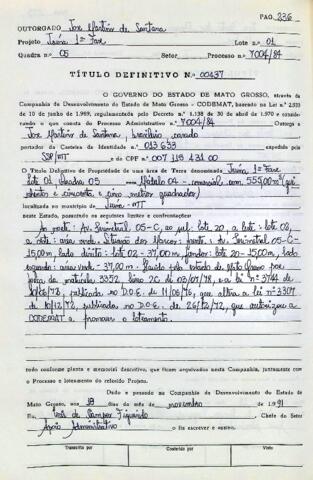 PAG. 236
OUTORGADO Jose Martins de Santana
Projeto Juina 1ª Fase Lote n.º 01
Quadra n.º 05 Setor Processo n.º 7004/84
TÍTULO DEFINITIVO N.º 00437
O GOVERNO DO ESTADO DE MATO GROSSO, através da
Companhia de Desenvolvimento do Estado de Mato Grosso - CODEMAT, baseado na Lei n.º
10 de junho de 1969, regulamentada pelo Decreto n.º 1.138 de 30 de abril de 1970 e consideran-
do o que consta do Processo Administrativo n.º 7004/84 Outorga a
Jose Martins de Santana, brasileiro, casado
portador da Carteira de Identidade n.º 013 633 expedida pela
SSP/MT e do CPF n.º 007 118 431 00
O Título Definitivo de Propriedade de uma área de Terra denominada Juina 1ª Fase
Lote 01 Quadra 05 Módulo 04 - comercial com 555,00m² (qui
nhentos e cinquenta e cinco metros quadrados)
localizada no município de Juina-MT
neste Estado, possuindo os seguintes limites e confrontações:
Ao norte: Av. Perimetral 05-C, ao sul: lote 20, a leste: lote 02,
a oeste: área verde. Situação dos Marcos: frente: Av. Perimetral 05-C-
15,00m, lado direito: lote 02 - 37,00m, fundos: lote 20 - 15,00m, lado
esquerdo: área verde - 37,00m. Havido pelo estado de Mato Grosso por
força da matrícula 3352 livro 2C de 03/07/78, e a lei nº 3744 de
10/06/76, publicada no D.O.E. de 11/06/76, que altera a lei nº 3307
de 18/12/72, publicada no D.O.E. de 26/12/72, que autorizou a
CODEMAT a promover o loteamento.
tudo conforme planta e memorial descritivo, que ficam arquivados nesta Companhia, juntamente com
o Processo e loteamento do referido Projeto.
Dado e passado na Companhia de Desenvolvimento do Estado de
Mato Grosso, aos 18 dias do mês de novembro de 1.991
Eu, de Campos Figueiredo, Chefe do Setor
Apoio Administrativo o fiz escrever e assino.
Transcrito por Conferido por Visto